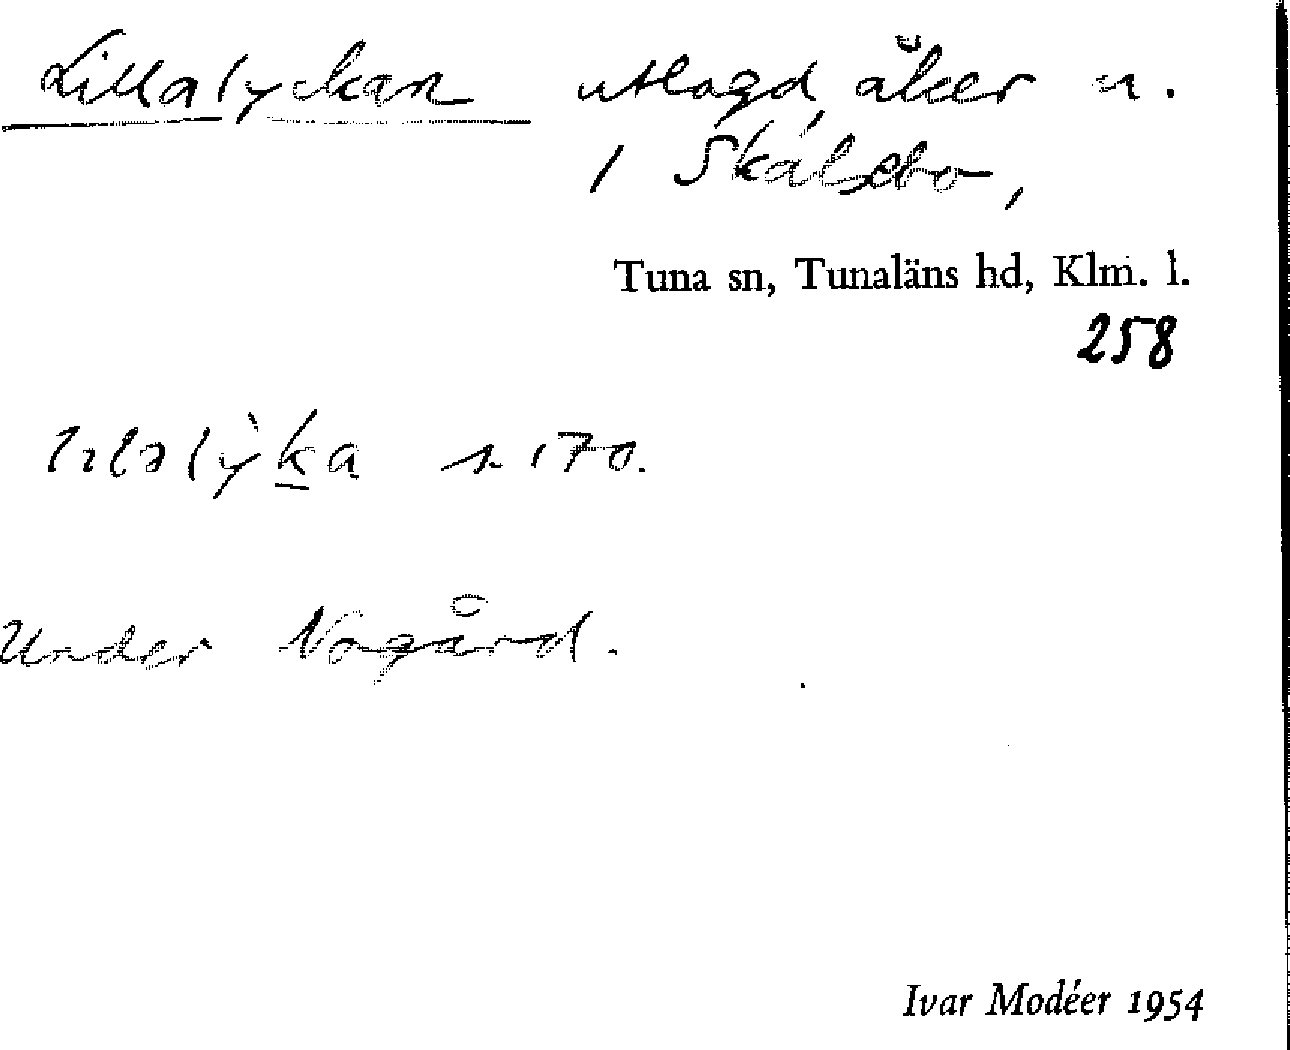 Lillalyckan utlagd åker n.
i Skälsebo,
Tuna sn, Tunaläns hd, Klm. l.
258
lilalỳka n 170.
Under Nogård.
Ivar Modéer 1954